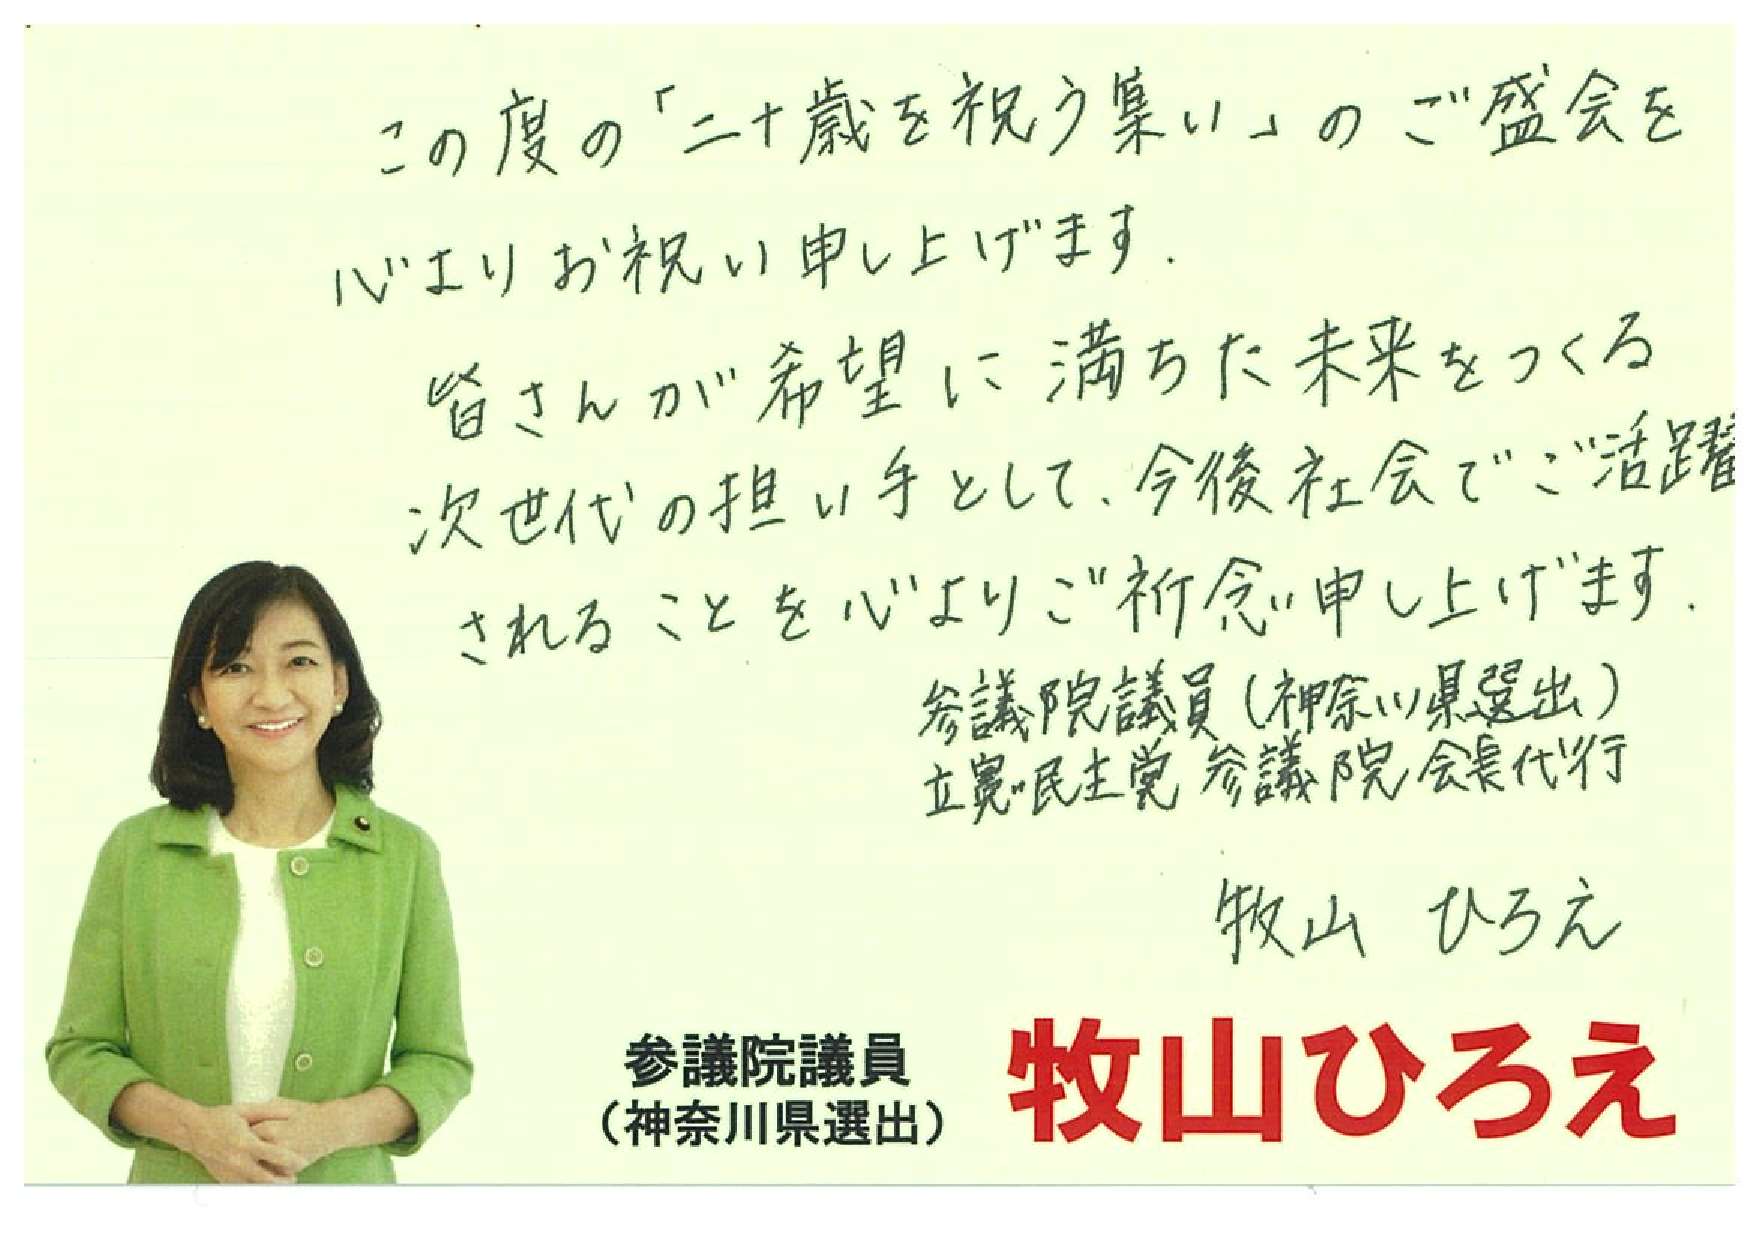 この度の「二十歳を祝う集い」のご盛会を
心よりお祝い申し上げます.
皆さんが希望に満ちた未来をつくる
次世代の担い手として、今後社会でご活躍
されることを心よりご祈念申し上げます.
参議院議員(神奈川県選出)
立憲民主党 参議院会長代行
牧山 ひろえ
参議院議員
（神奈川県選出）
牧山ひろえ